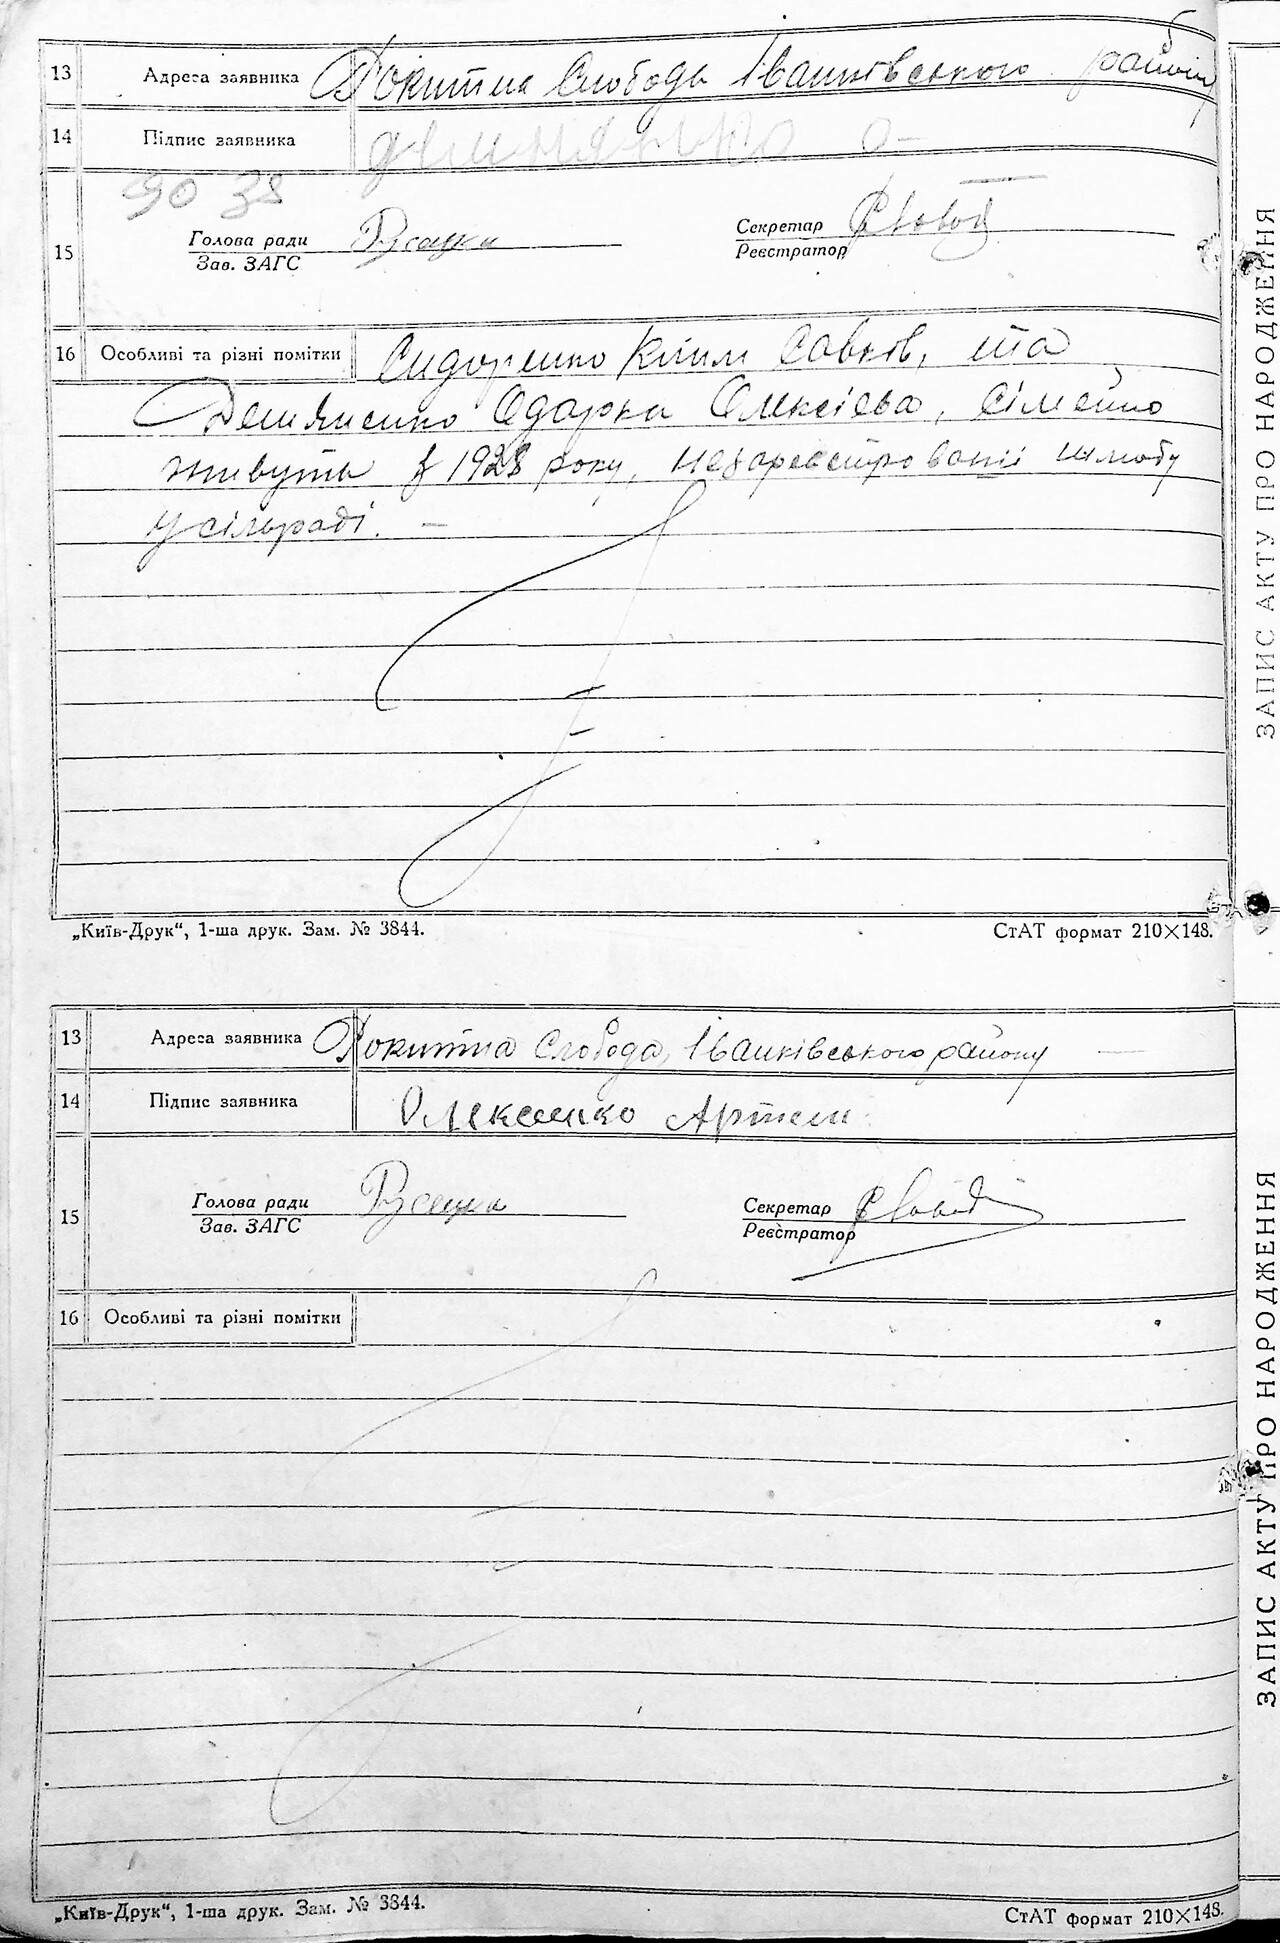 13 Адреса заявника Рокитна Слобода Іванківського району
14 Підпис заявника
15 Голова ради
Зав. ЗАГС
Секретар
Реєстратор
16 Особливі та різні помітки Сидоренко Клим Савків, та
Дем'яненко Одарка Олексієва, сімейно
живуть з 1928 року, незареєстровані шлюбу
у сільраді. —
„Київ-Друк“, 1-ша друк. Зам. № 3844. СтАТ формат 210×148.
13 Адреса заявника Рокитна Слобода, Іванківського району —
14 Підпис заявника Олексеєнко Артем
15 Голова ради
Зав. ЗАГС
Секретар
Реєстратор
16 Особливі та різні помітки
„Київ-Друк“, 1-ша друк. Зам. № 3844. СтАТ формат 210×148.
ЗАПИС АКТУ ПРО НАРОДЖЕННЯ
ЗАПИС АКТУ ПРО НАРОДЖЕННЯ